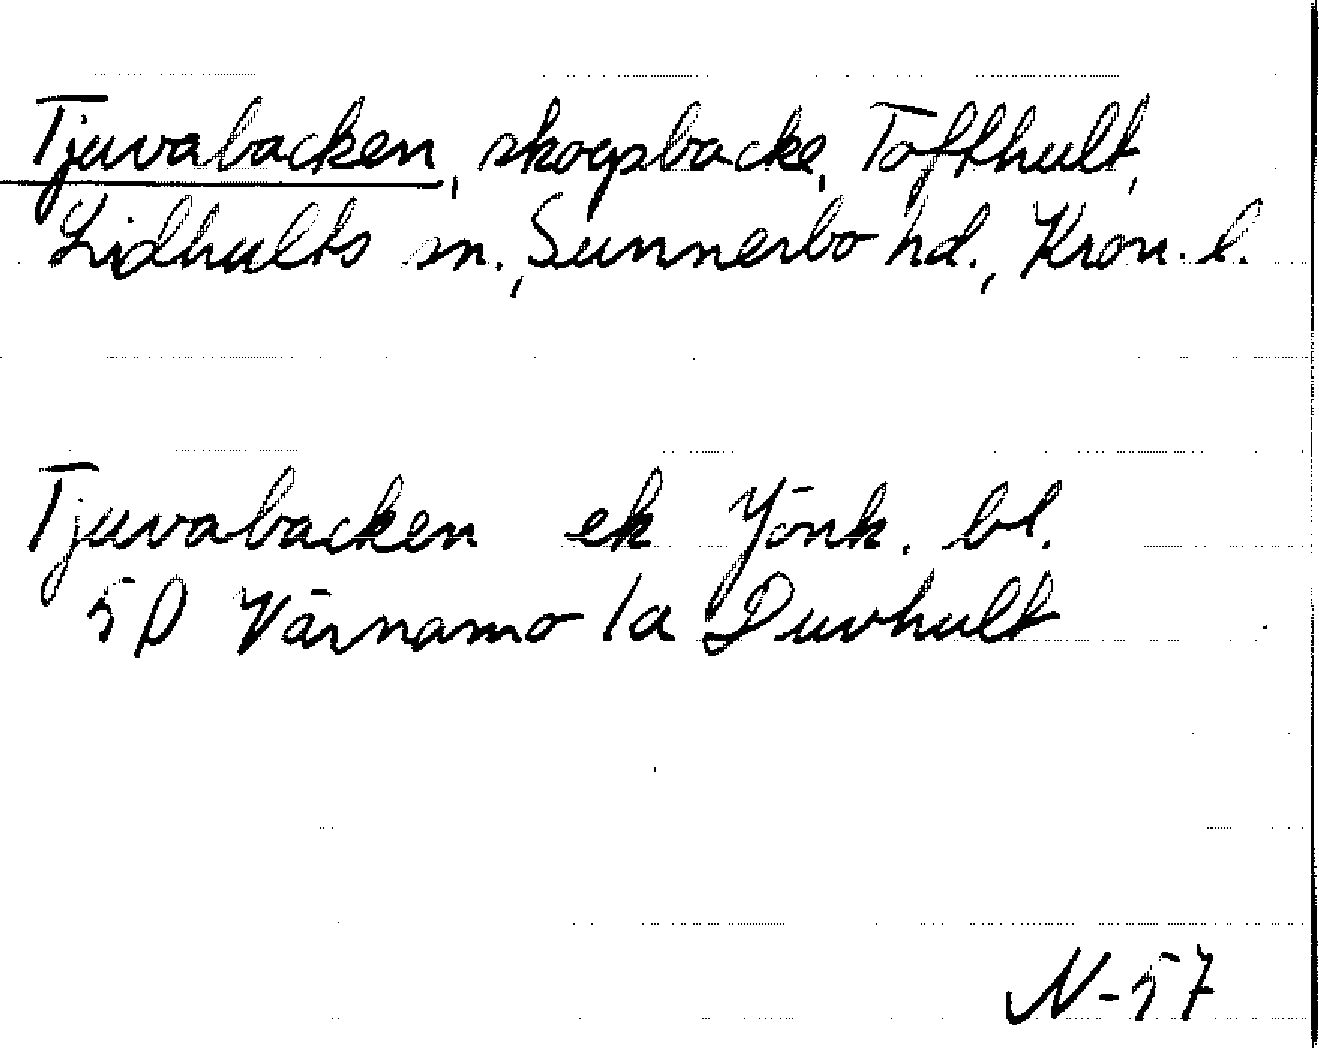 Tjuvabacken, skogsbacke, Tofthult,
Lidhults sn., Sunnerbo hd., Kron. l.
Tjuvabacken ek Jönk. bl.
5D Värnamo 1a Duvhult
N-57